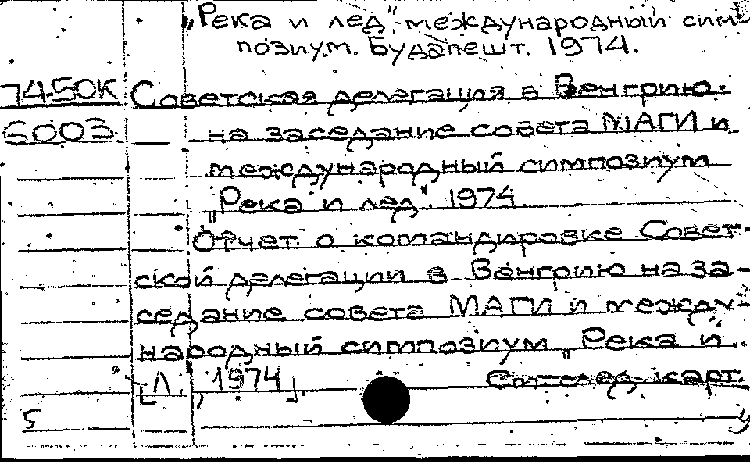 „Река и лед", международный сим-
позиум. Будапешт. 1974.
7450К Советская делегация в Венгрию.
6003 на заседание совета МАГИ и
международный симпозиум
„Река и лед". 1974
Отчет о командировке Совет-
ской делегации в Венгрию на за-
седание совета МАГИ и между-
народный симпозиум „Река и
[Л., 1974]. См. след. карт.
5